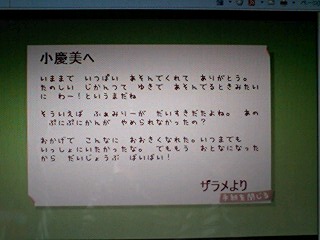 小慶美へ
いままで いっぱい あそんでくれて ありがとう。
たのしい じかんって ゆきで あそんでるときみたい
に わー！というまだね
そういえば ふぁみりーが だいすきだたよね。 あの
ぷにぷにかんが やめられなかったの？
おかげで こんなに おおきくなれた。いつまでも
いっしょにいたかったな。でももう おとなになった
から だいじょうぶ ばいばい！
ザラメより
手紙を閉じる